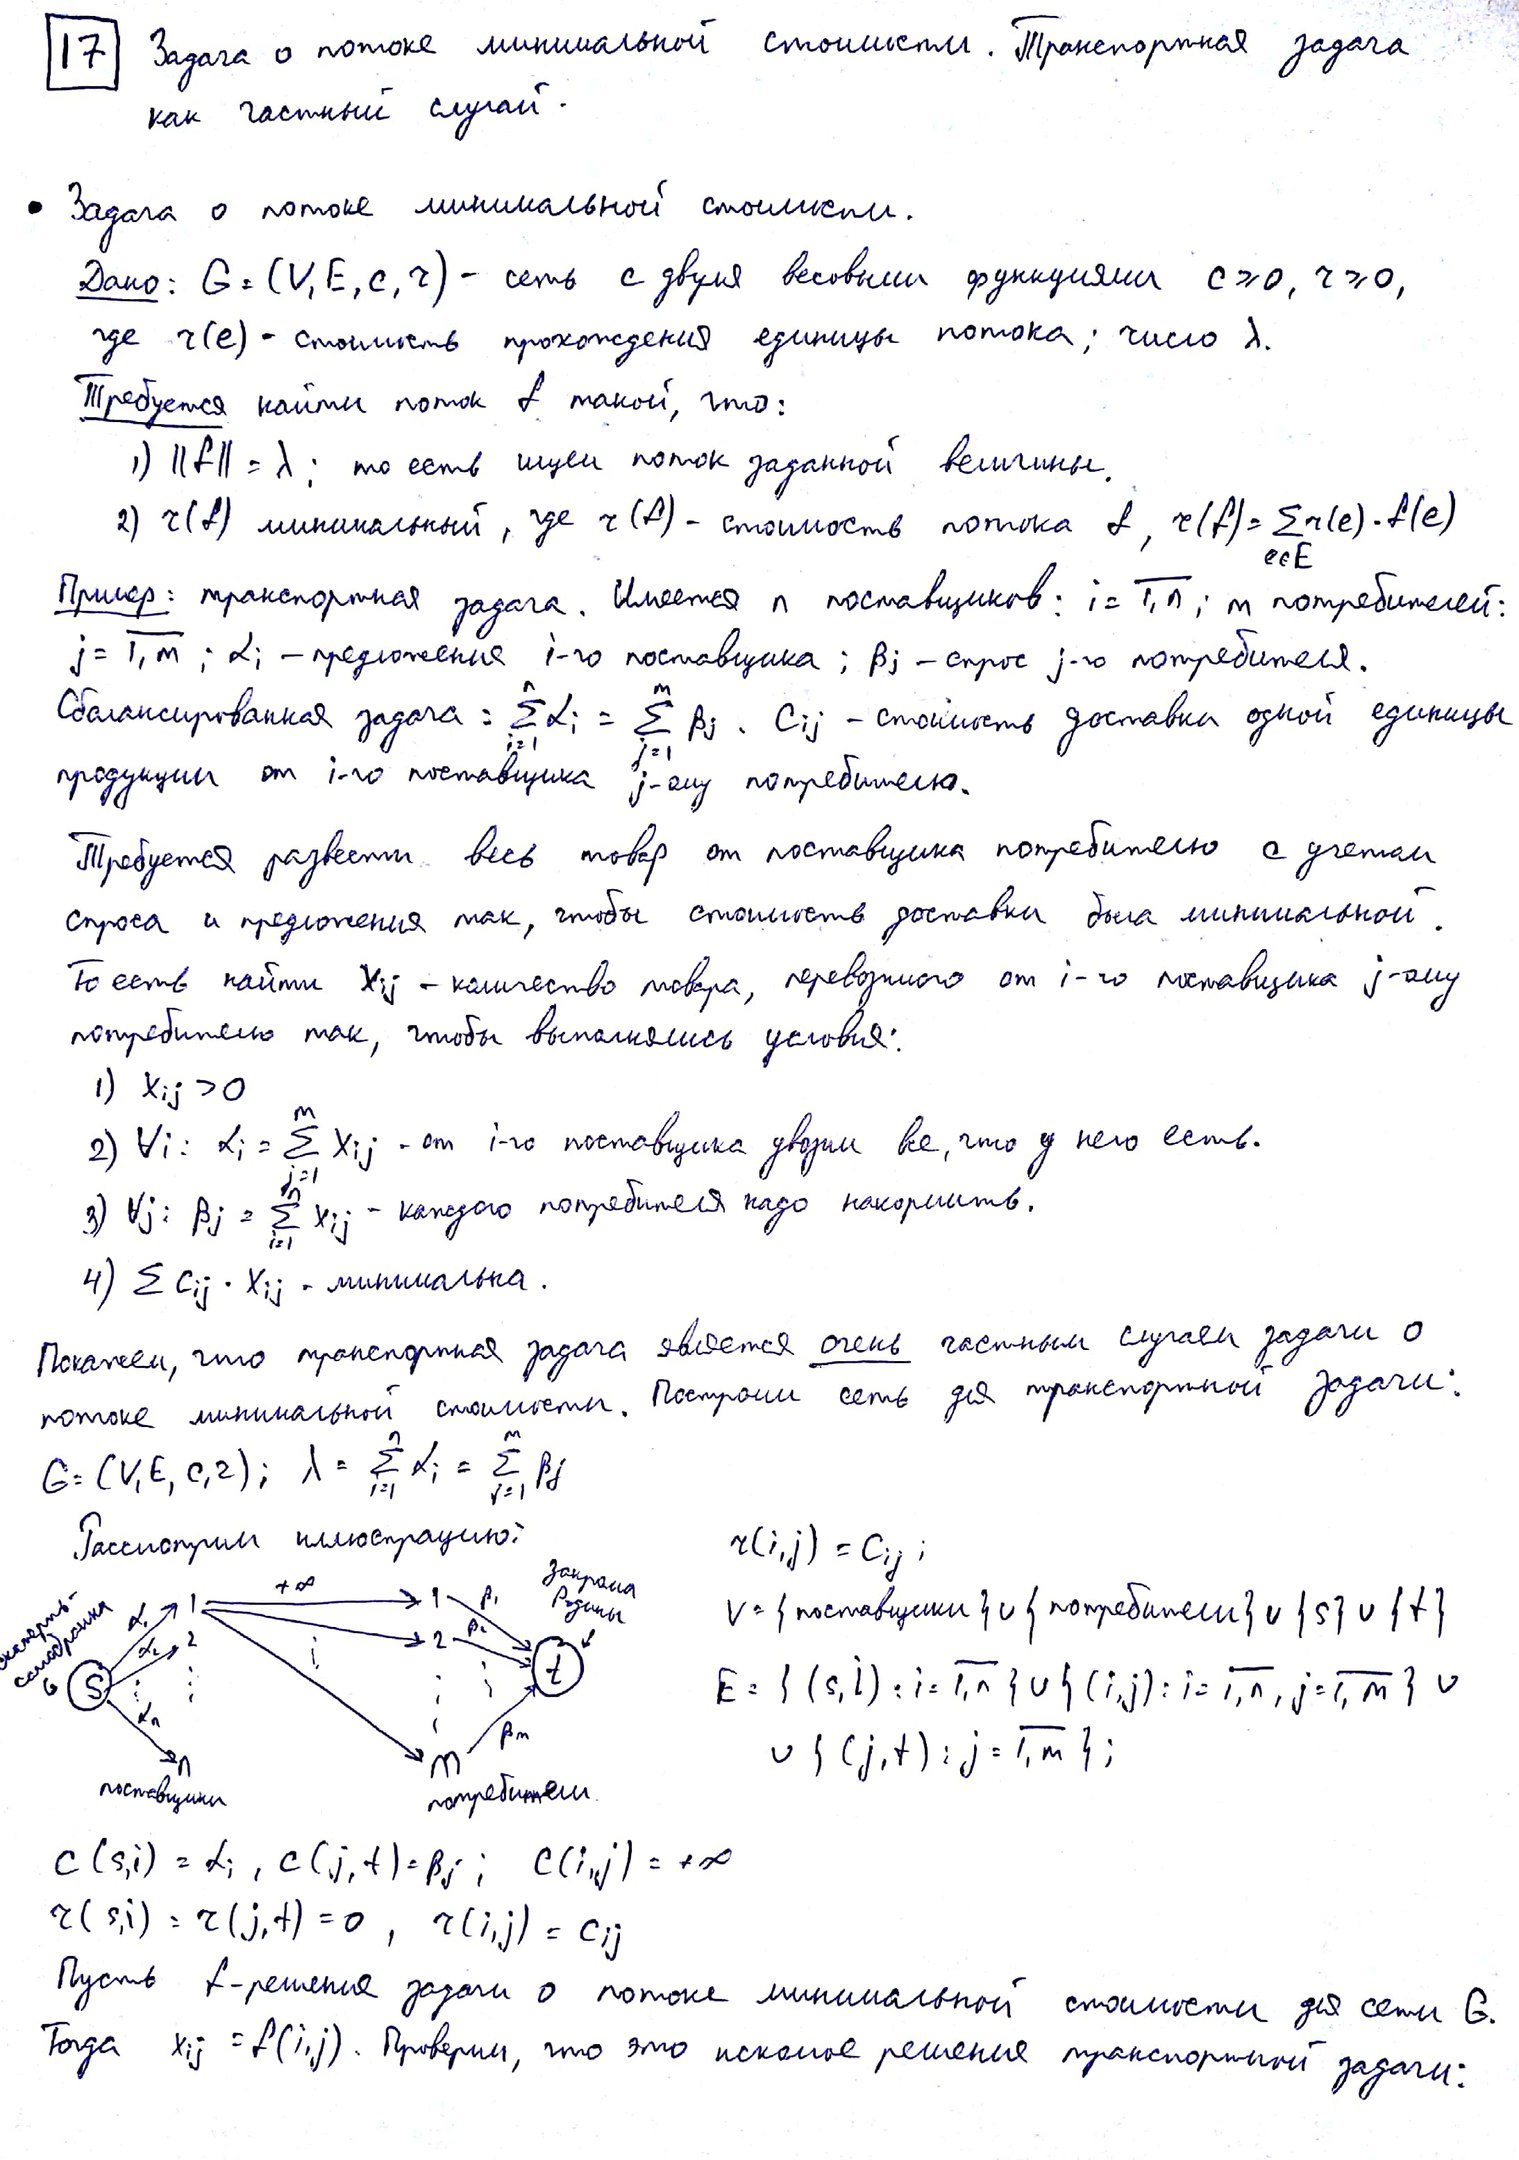 17 Задача о потоке минимальной стоимости. Транспортная задача
как частный случай.
• Задача о потоке минимальной стоимости.
Дано: G = (V, E, c, r) - сеть с двумя весовыми функциями c ⩾ 0, r ⩾ 0,
где r(e) - стоимость прохождения единицы потока; число λ.
Требуется найти поток f такой, что:
1) ||f|| = λ; то есть ищем поток заданной величины.
2) r(f) минимальный, где r(f) - стоимость потока f, r(f) = Σ_{e∈E} r(e)·f(e)
Пример: транспортная задача. Имеется n поставщиков: i = \overline{1,n}; m потребителей:
j = \overline{1,m}; αᵢ - предложения i-го поставщика; βⱼ - спрос j-го потребителя.
Сбалансированная задача: Σ_{i=1}^{n} αᵢ = Σ_{j=1}^{m} βⱼ. Cᵢⱼ - стоимость доставки одной единицы
продукции от i-го поставщика j-ому потребителю.
Требуется развести весь товар от поставщика потребителю с учетом
спроса и предложения так, чтобы стоимость доставки была минимальной.
То есть найти Xᵢⱼ - количество товара, перевозимого от i-го поставщика j-ому
потребителю так, чтобы выполнялись условия:
1) Xᵢⱼ > 0
2) ∀i: αᵢ = Σ_{j=1}^{m} Xᵢⱼ - от i-го поставщика увозим все, что у него есть.
3) ∀j: βⱼ = Σ_{i=1}^{n} Xᵢⱼ - каждого потребителя надо накормить.
4) Σ Cᵢⱼ · Xᵢⱼ - минимальна.
Покажем, что транспортная задача является очень частным случаем задачи о
потоке минимальной стоимости. Построим сеть для транспортной задачи:
G = (V, E, c, r); λ = Σ_{i=1}^{n} αᵢ = Σ_{j=1}^{m} βⱼ
Рассмотрим иллюстрацию:
скатерть-
самобранка
S
α₁
α₂
αₙ
1
2
n
поставщики
+∞
1
2
m
потребители
β₁
β₂
βm
t
Закрома
Родины
r(i,j) = Cᵢⱼ;
V = {поставщики} ∪ {потребители} ∪ {s} ∪ {t}
E = {(s,i) : i = \overline{1,n}} ∪ {(i,j) : i = \overline{1,n}, j = \overline{1,m}} ∪
∪ {(j,t) : j = \overline{1,m}};
c(s,i) = αᵢ, c(j,t) = βⱼ; c(i,j) = +∞
r(s,i) = r(j,t) = 0, r(i,j) = Cᵢⱼ
Пусть f - решения задачи о потоке минимальной стоимости для сети G.
Тогда xᵢⱼ = f(i,j). Проверим, что это искомое решение транспортной задачи: